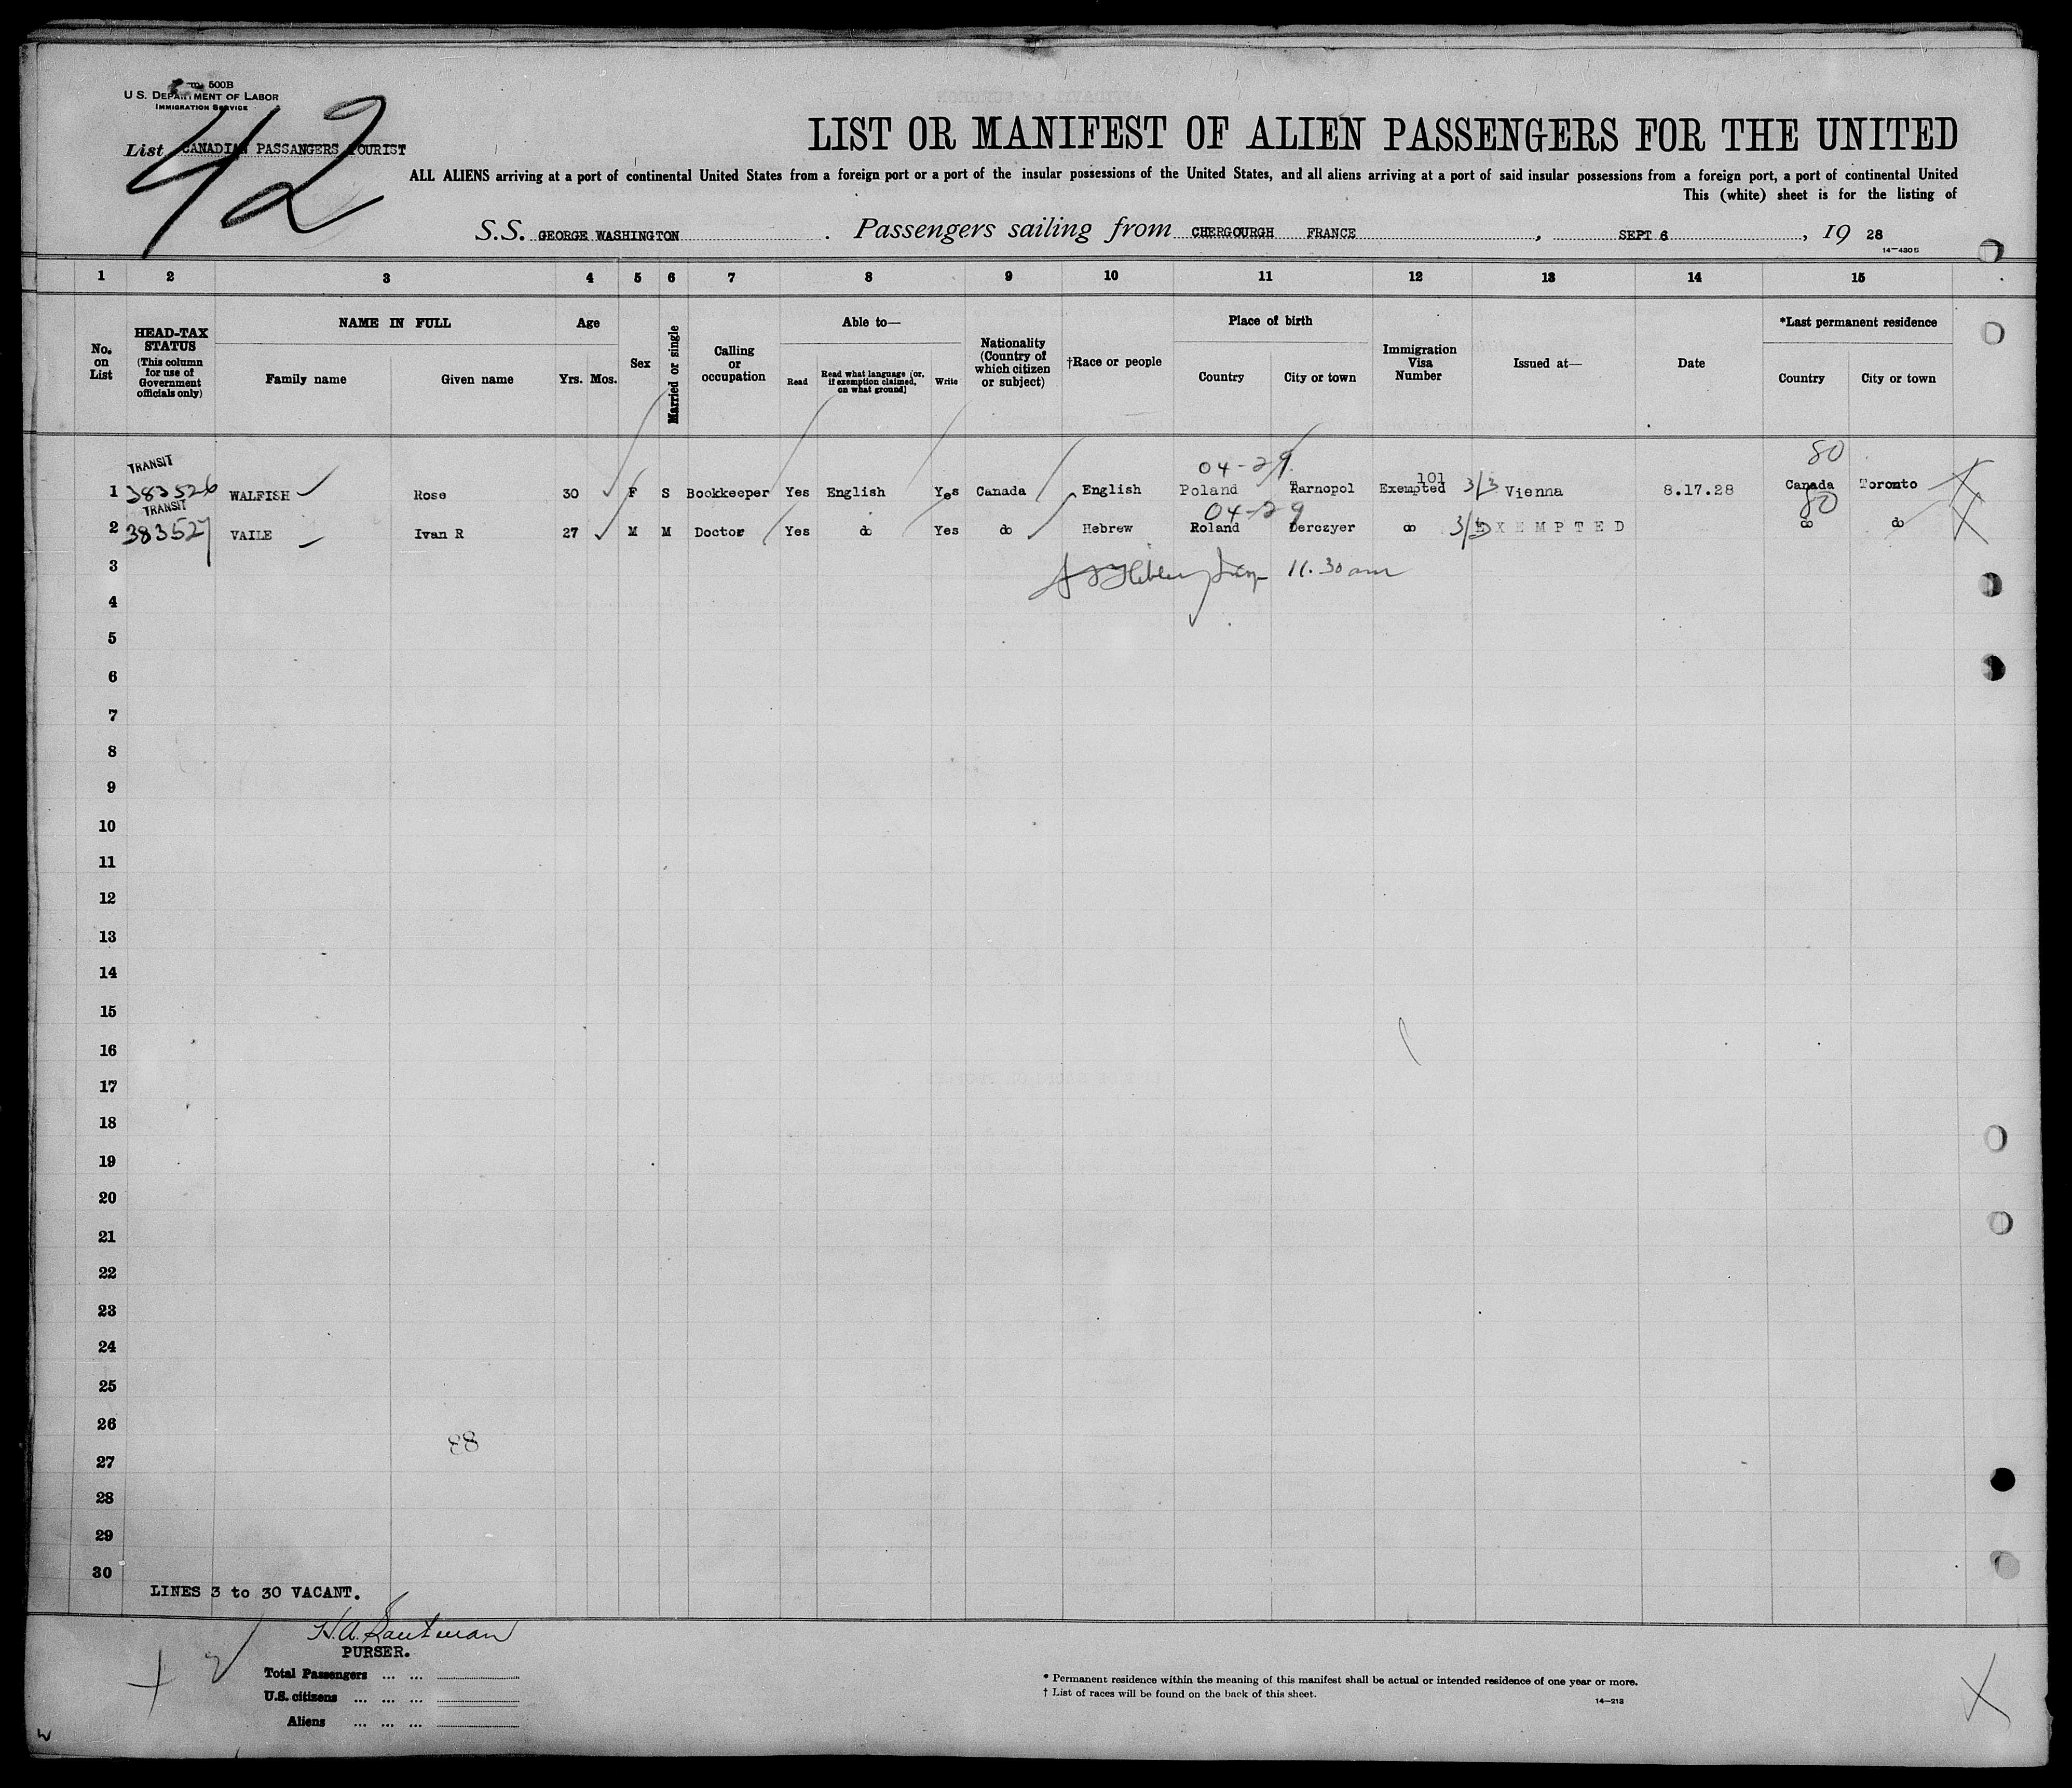 500B
U.S. DEPARTMENT OF LABOR
IMMIGRATION SERVICE
42
List CANADIAN PASSANGERS TOURIST
LIST OR MANIFEST OF ALIEN PASSENGERS FOR THE UNITED
ALL ALIENS arriving at a port of continental United States from a foreign port or a port of the insular possessions of the United States, and all aliens arriving at a port of said insular possessions from a foreign port, a port of continental United
This (white) sheet is for the listing of
S.S. GEORGE WASHINGTON . Passengers sailing from CHERGOURGH FRANCE , SEPT 6 , 19 28
14—430 B
1 2 3 4 5 6 7 8 9 10 11 12 13 14 15
No. on List
HEAD-TAX STATUS (This column for use of Government officials only)
NAME IN FULL
Family name Given name
Age
Yrs. Mos.
Sex
Married or single
Calling or occupation
Able to—
Read Read what language [or, if exemption claimed, on what ground] Write
Nationality (Country of which citizen or subject)
†Race or people
Place of birth
Country City or town
Immigration Visa Number
Issued at—
Date
*Last permanent residence
Country City or town
TRANSIT 04-29 80
1 383526 WALFISH Rose 30 F S Bookkeeper Yes English Yes Canada English Poland Rarnopol Exempted 101 3/3 Vienna 8.17.28 Canada Toronto
TRANSIT 04-29 80
2 383527 VAILE Ivan R 27 M M Doctor Yes do Yes do Hebrew Roland Derczyer do 3/3 EXEMPTED do do
3 11.30 am
4
5
6
7
8
9
10
11
12
13
14
15
16
17
18
19
20
21
22
23
24
25
26
88
27
28
29
30
LINES 3 to 30 VACANT.
PURSER.
Total Passengers ... ...
U.S. citizens ... ... ...
Aliens ... ... ...
* Permanent residence within the meaning of this manifest shall be actual or intended residence of one year or more.
† List of races will be found on the back of this sheet.
14—213